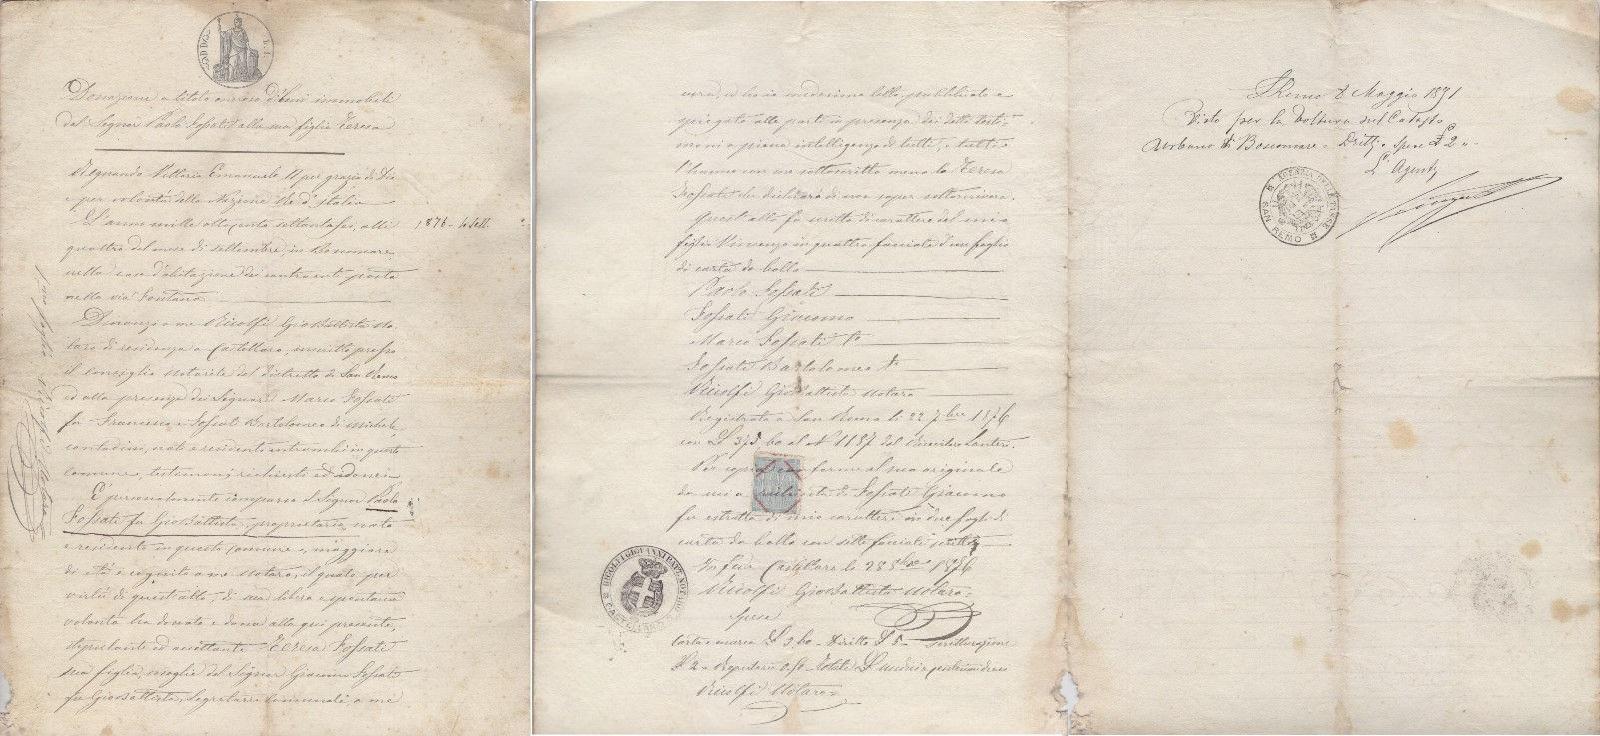 Donazione a titolo oneroso di beni immobili
dal Signor Paolo Fossati alla sua figlia Teresa
Regnando Vittorio Emanuele II per grazia di Dio
e per volontà della Nazione Re d'Italia
L'anno mille ottocento settantasei, alli
1876 - 4 Sett.
quattro del mese di settembre, in Boscomare
nella casa d'abitazione dei contraenti posta
nella via Fontana
Dinanzi a me Ricolfi Gio Battista No-
taro di residenza a Castellaro, inscritto presso
il Consiglio Notarile del distretto di San Remo
ed alla presenza dei Signori Marco Fossati
fu Francesco e Fossati Bartolomeo di Michele,
contadini, nati e residenti entrambi in questo
comune, testimoni richiesti ed idonei
È personalmente comparso il Signor Paolo
Fossati fu Gio Battista, proprietario, nato
e residente in questo comune, maggiore
di età e cognito a me Notaro, il quale per
virtù di quest'atto, di sua libera e spontanea
volontà ha donato e dona alla qui presente,
stipulante ed accettante Teresa Fossati
sua figlia, moglie del Signor Giacomo Fossati
fu Gio Battista, Segretario Comunale a me
foglio Ricolfi Notaro
ed ho io medesimo letto, pubblicato e
spiegato alle parti in presenza dei detti testi-
moni a piena intelligenza di tutti, e tutti
l'hanno con me sottoscritto meno la Teresa
Fossati che dichiara di non saper sottoscrivere.
Quest'atto fu scritto di carattere del mio
figlio Vincenzo in quattro facciate d'un foglio
di carta da bollo
Paolo Fossati
Fossati Giacomo
Marco Fossati Te
Fossati Bartolomeo Te
Ricolfi Gio Battista Notaro
Registrato a San Remo li 22 7bre 1876
con L 373 60 al N 1187 dal Ricevitore
Per copia conforme al suo originale
da me a richiesta di Fossati Giacomo
fu estratta di mio carattere in due fogli di
carta da bollo con sette facciate scritte
In fede Castellaro li 28 8bre 1876
Ricolfi Gio Battista Notaro
Spese
Carta e marca L 3 60 - Diritto L 5 - scritturazione
L 2 - Repertorio 0.50 - Totale L undici centesimi dieci
Ricolfi Notaro
RICOLFI GIOVANNI BATT. NOTARO
CASTELLARO
S Remo 8 Maggio 1891
Visto per la Voltura nel Catasto
Urbano di Boscomare - Diritti e spese £ 2
L'Agente
AGENZIA DELLE TASSE
SAN REMO